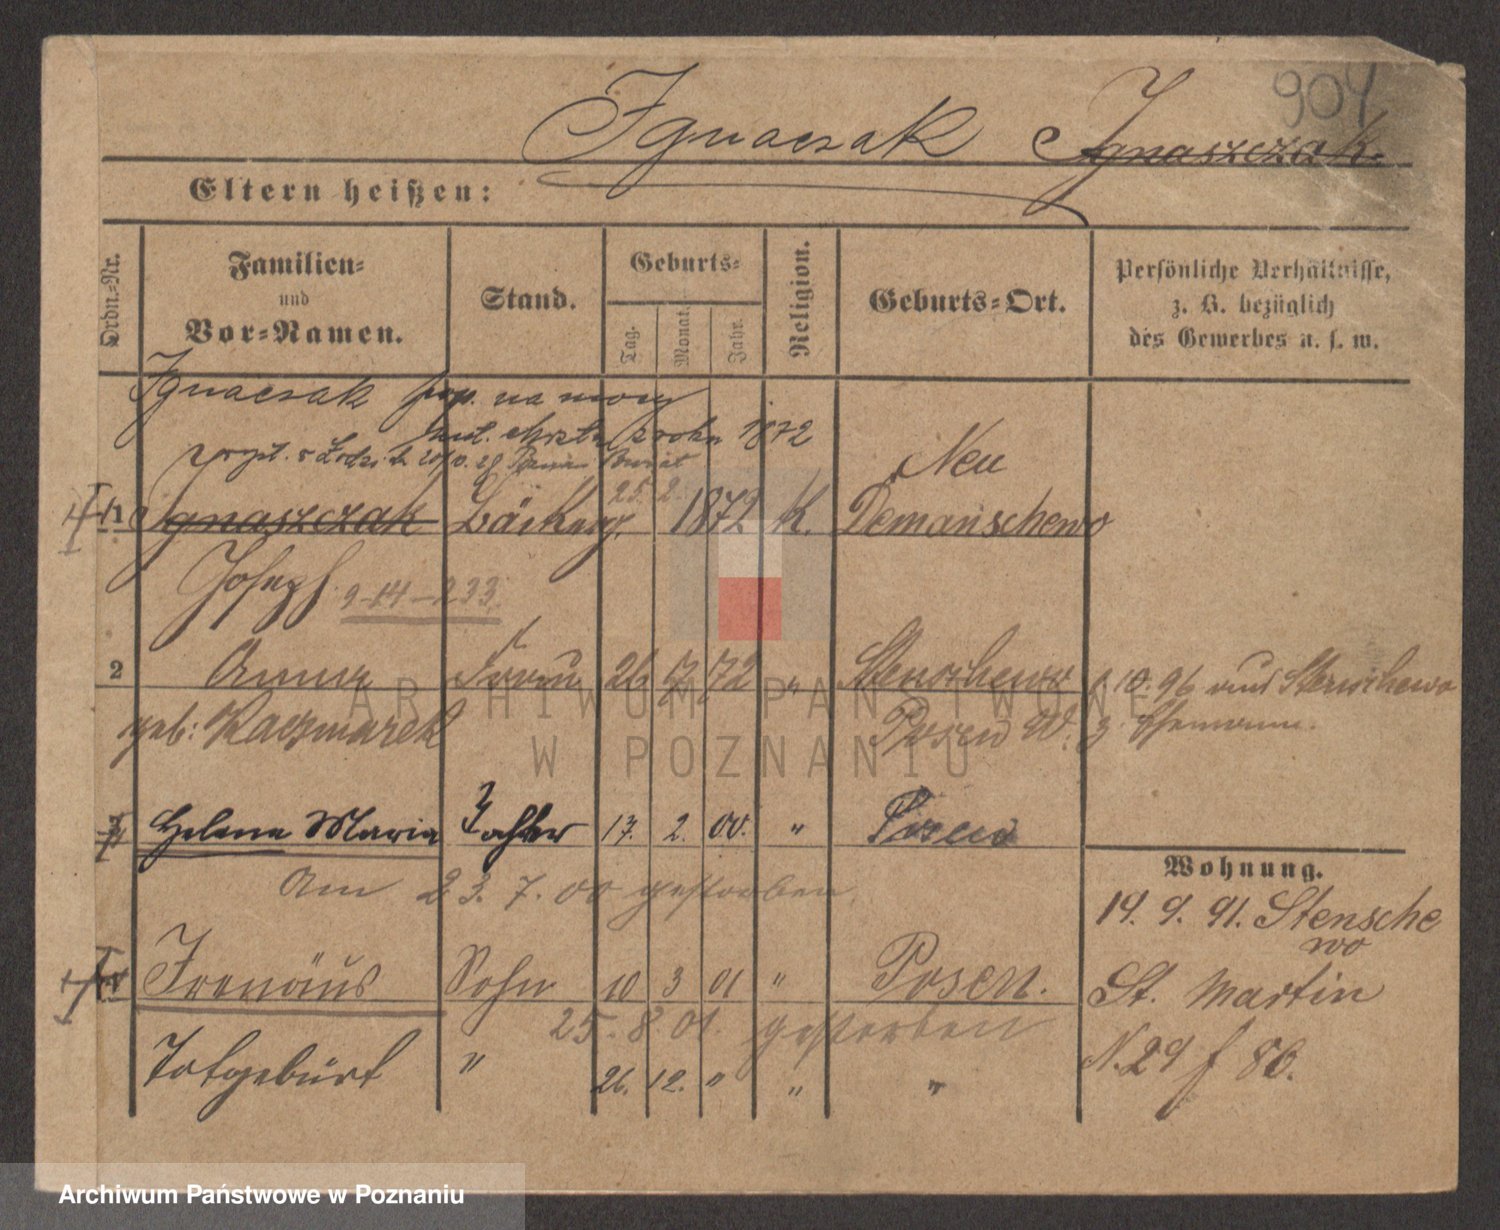 904
Ignaczak Ignaszczak.
Eltern heißen:
Ordn.-Nr.
Familien-
und
Vor-Namen.
Stand.
Geburts-
Tag.
Monat.
Jahr.
Religion.
Geburts-Ort.
Persönliche Verhältnisse,
z. B. bezüglich
des Gewerbes u. s. w.
Ignaczak pop. na mocy
1872
25. 2.
Neu
1 Ignaszczak Bäckerg. 1872 K. Demanschewo
Joseph 9-14-233
2 Anna Frau 26 7. 72 " Stenschewo 1. 10. 96 aus Stenschewo
geb: Kaczmarek Posen W. z. Ehemann.
3 Helene Maria Tochter 17. 2. 00. " Posen
Am 23. 7. 00 gestorben.
Wohnung.
19. 9. 91. Stensche
wo
Irenäus Sohn 10 3 01 " Posen.
St. Martin
25. 8. 01. gestorben
N. 29 f 86.
Totgeburt " 26. 12. " " "
ARCHIWUM PAŃSTWOWE
W POZNANIU
Archiwum Państwowe w Poznaniu